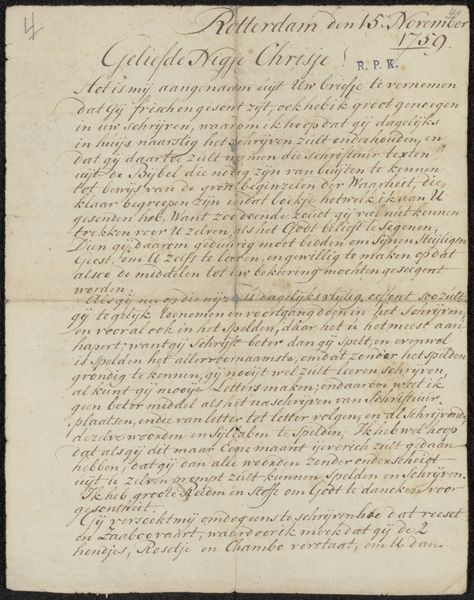 4
Rotterdam den 15 November
1759
Geliefde Nigje Chrisje!
R. P. K.
Het is mij aangenaam uijt Uw briefje te vernemen
dat Gij frisch en gesont zijt, ook heb ik groot genoegen
in uw schrijven, waarom ik hoop dat gij dagelijks
in huijs naarstig het schrijven zult onderhouden, en
dat gij daar toe zult nemen de Schriftuur texten
uijt de Bijbel die nodig zijn van buijten te kennen
tot bewijs van de grontbeginzelen der Waarheit, die
klaar begreepen zijn in dat boekje hetwelk ik aan U
gesonden heb. Want zoo doende zoudt gij veel nut kennen
trekken voor U zelven, als het Godt belieft te Segenen,
Dien gij daarom geduurig moet bidden om Sijnen Heijligen
Geest, om U zelfs te leeren, en gewillig te maken op dat
alsoo de middelen tot uw bekering mochten geseegent
worden:
Als gij nu op die wijze U dagelijks vlijtig oefent soo zult
gij te gelijk toenemen en voortgang doen in het Schrijven,
en voor al ook in het Spelden, daar het u het meest aan
hapert; want gij Schrijft beter dan gij Spelt, en evenwel
is Spelden het allervoornaamste, omdat zonder het spelden
grondig te kennen, gij nooijt wel zult leeren schrijven,
al kunt gij mooije Letters maken; en daarom weet ik
geen beter middel als het naschrijven van Schriftuur
plaatsen, en die van letter tot letter volgen, en al Schrijvende
dezelve woorden en Syllaben te Spelden; Ik heb wel hoop
dat als gij dit maar Eene maant ijverich zult gedaan
hebben, dat gij dan alle woorden zonder onderscheit
uijt u zelven prompt zult kunnen Spelden en Schrijven.
Ik heb groote Reeden en Stoffe om Godt te dancken voor
gesontheit.
Gij versoekt mij om dog eens te schrijven hoe dat reeset
en Zaaboo vaart, waar door ik merk dat gij de 2
hondjes, Rosetje en Chambo verstaat, om U dan